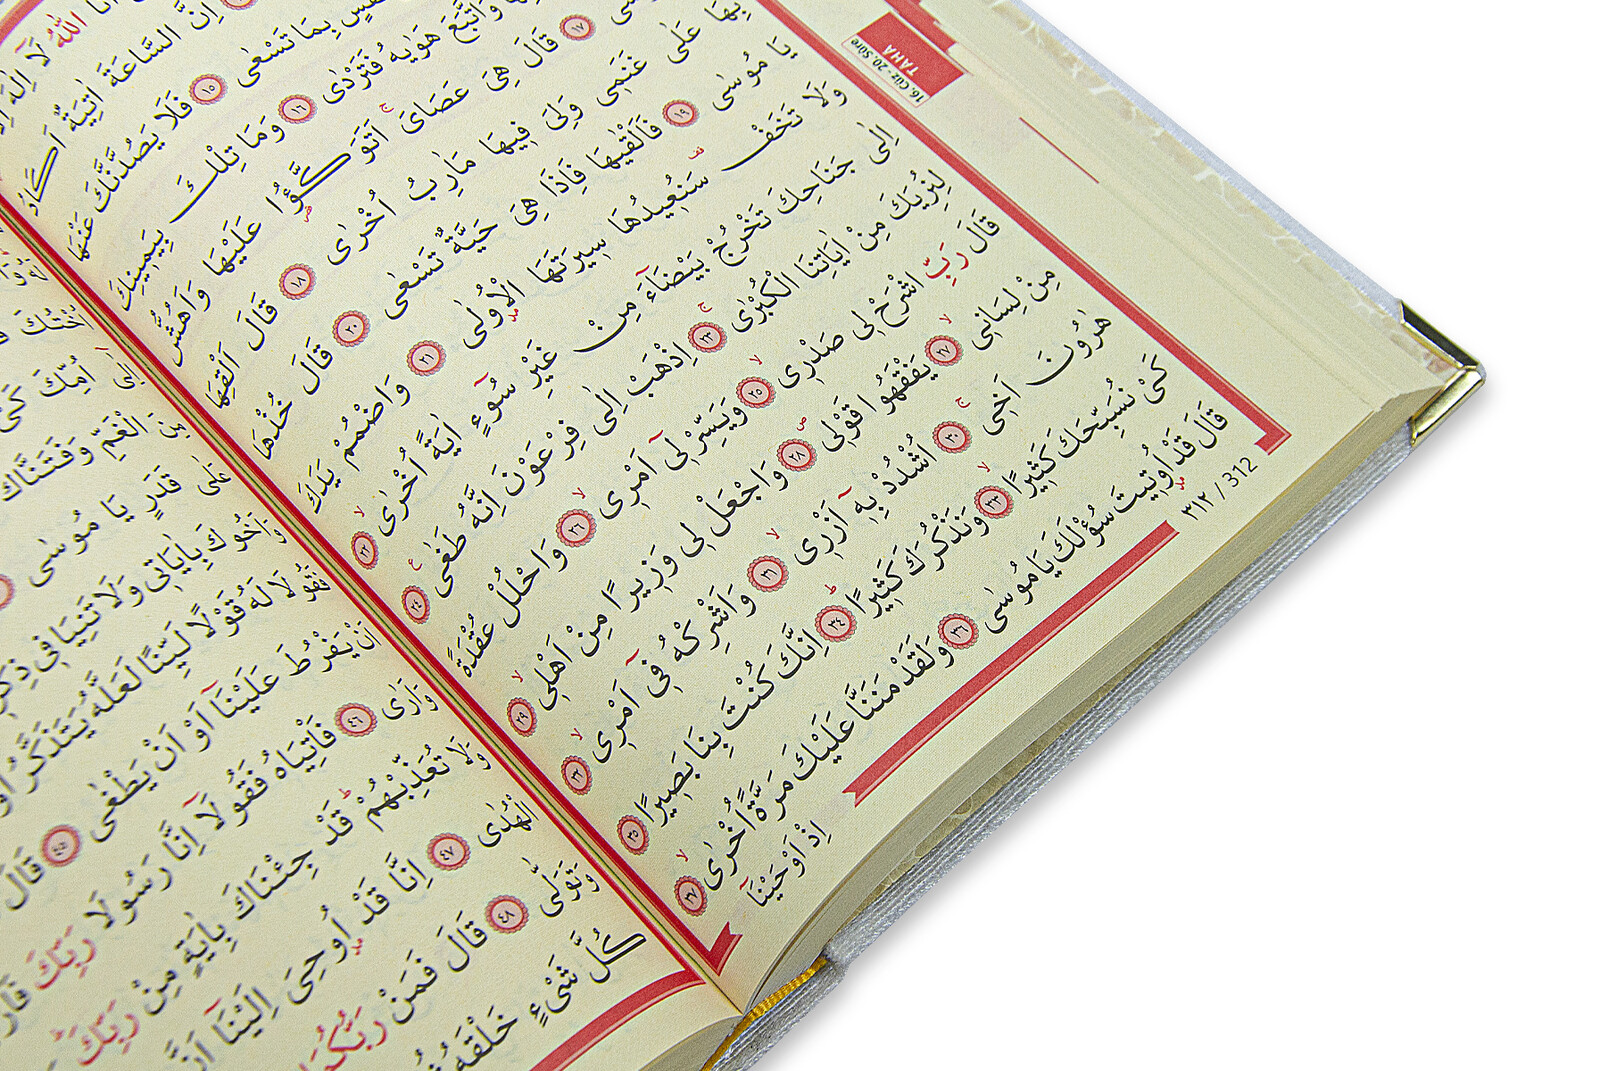 16. Cüz - 20. Sûre
TÂHÂ
اَنَا اللّٰهُ لَٓا اِلٰهَ
اِنَّ السَّاعَةَ اٰتِيَةٌ اَكَادُ
بِمَا تَسْعٰى ﴿١٥﴾ فَلَا يَصُدَّنَّكَ عَنْهَا
وَاتَّبَعَ هَوٰيهُ فَتَرْدٰى ﴿١٦﴾ وَمَا تِلْكَ بِيَمٖينِكَ
﴿١٧﴾ قَالَ هِىَ عَصَاىَ اَتَوَكَّؤُا عَلَيْهَا وَاَهُشُّ
بِهَا عَلٰى غَنَمٖى وَلِىَ فٖيهَا مَاٰرِبُ اُخْرٰى ﴿١٨﴾ قَالَ اَلْقِهَا
يَا مُوسٰى ﴿١٩﴾ فَاَلْقٰيهَا فَاِذَا هِىَ حَيَّةٌ تَسْعٰى ﴿٢٠﴾ قَالَ خُذْهَا
وَلَا تَخَفْ سَنُعٖيدُهَا سٖيرَتَهَا الْاُولٰى ﴿٢١﴾ وَاضْمُمْ يَدَكَ
اِلٰى جَنَاحِكَ تَخْرُجْ بَيْضَٓاءَ مِنْ غَيْرِ سُٓوءٍ اٰيَةً اُخْرٰى ﴿٢٢﴾
لِنُرِيَكَ مِنْ اٰيَاتِنَا الْكُبْرٰى ﴿٢٣﴾ اِذْهَبْ اِلٰى فِرْعَوْنَ اِنَّهُ طَغٰى ﴿٢٤﴾
قَالَ رَبِّ اشْرَحْ لٖى صَدْرٖى ﴿٢٥﴾ وَيَسِّرْ لٖٓى اَمْرٖى ﴿٢٦﴾ وَاحْلُلْ عُقْدَةً
مِنْ لِسَانٖى ﴿٢٧﴾ يَفْقَهُوا قَوْلٖى ﴿٢٨﴾ وَاجْعَلْ لٖى وَزٖيرًا مِنْ اَهْلٖى ﴿٢٩﴾
هٰرُونَ اَخٖى ﴿٣٠﴾ اُشْدُدْ بِهٖٓ اَزْرٖى ﴿٣١﴾ وَاَشْرِكْهُ فٖٓى اَمْرٖى ﴿٣٢﴾
كَىْ نُسَبِّحَكَ كَثٖيرًا ﴿٣٣﴾ وَنَذْكُرَكَ كَثٖيرًا ﴿٣٤﴾ اِنَّكَ كُنْتَ بِنَا بَصٖيرًا ﴿٣٥﴾
قَالَ قَدْ اُوتٖيتَ سُؤْلَكَ يَا مُوسٰى ﴿٣٦﴾ وَلَقَدْ مَنَنَّا عَلَيْكَ مَرَّةً اُخْرٰى ﴿٣٧﴾
اِذْ اَوْحَيْنَٓا
٣١٢ / 312
اُخْتُكَ
اِلٰٓى اُمِّكَ كَىْ
مِنَ الْغَمِّ وَفَتَنَّاكَ
عَلٰى قَدَرٍ يَا مُوسٰى
وَاَخُوكَ بِاٰيَاتٖى وَلَا تَنِيَا فٖى
فَقُولَا لَهُ قَوْلًا لَيِّنًا لَعَلَّهُ يَتَذَكَّرُ اَوْ
اَنْ يَفْرُطَ عَلَيْنَٓا اَوْ اَنْ يَطْغٰى ﴿٤٥﴾ قَالَ
وَاَرٰى ﴿٤٦﴾ فَاْتِيَاهُ فَقُولَٓا اِنَّا رَسُولَا رَبِّكَ
وَلَا تُعَذِّبْهُمْ قَدْ جِئْنَاكَ بِاٰيَةٍ مِنْ رَبِّكَ
الْهُدٰى ﴿٤٧﴾ اِنَّا قَدْ اُوحِىَ اِلَيْنَٓا اَنَّ
وَتَوَلّٰى ﴿٤٨﴾ قَالَ فَمَنْ رَبُّكُمَا
كُلَّ شَىْءٍ خَلْقَهُ